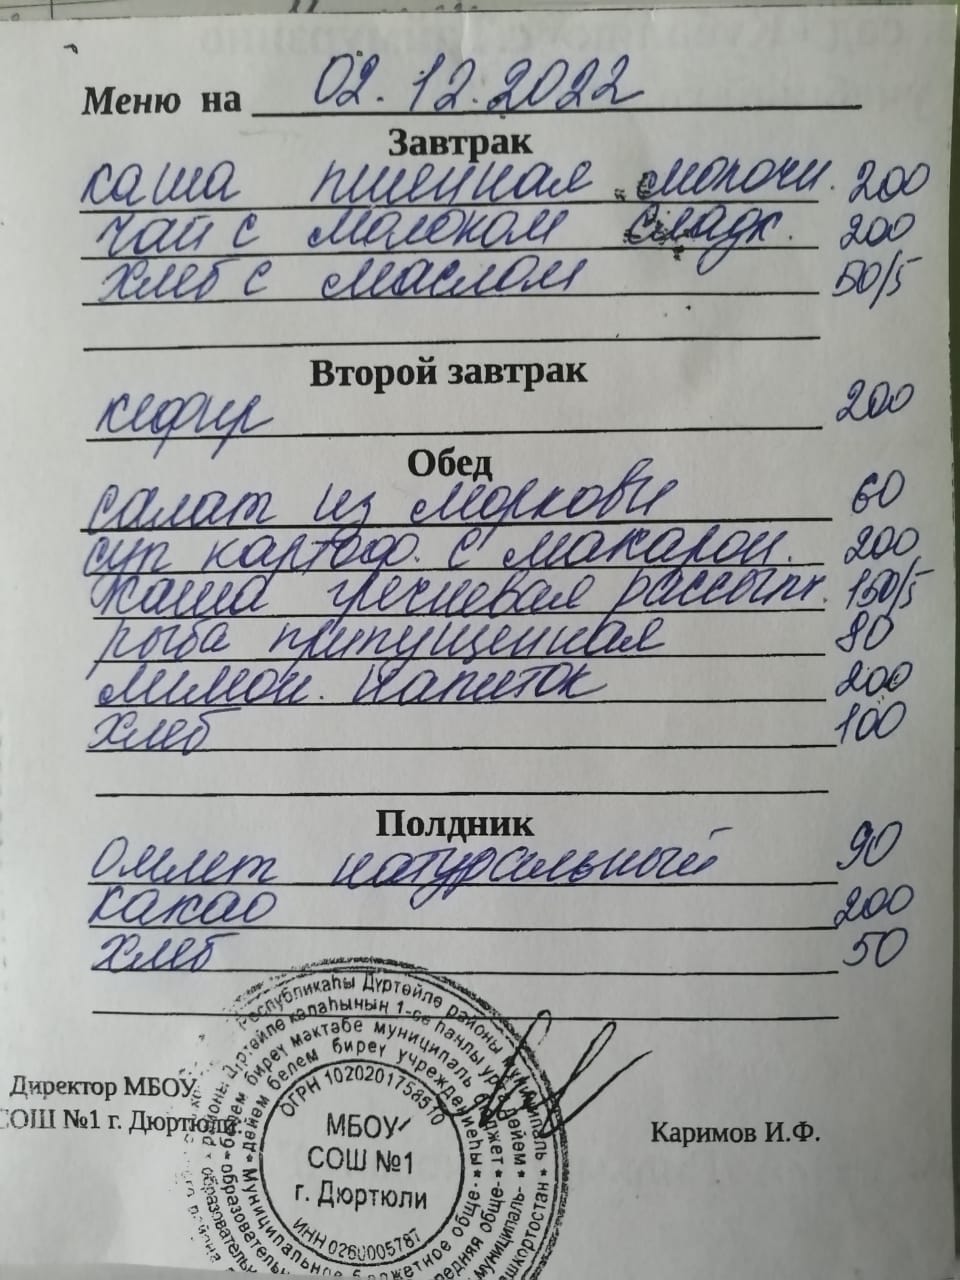 Меню на 02.12.2022
Завтрак
каша пшенная молочн. 200
чай с молоком сладк. 200
хлеб с маслом 50/5
Второй завтрак
кефир 200
Обед
салат из моркови 60
суп картоф. с макарон. 200
каша гречневая рассыпч. 150/5
рыба припущенная 80
лимон. напиток 200
хлеб 100
Полдник
омлет натуральный 90
какао 200
хлеб 50
Директор МБОУ
СОШ №1 г. Дюртюли.
Каримов И.Ф.
Республикаһы Дүртөйлө районы муниципаль
Дүртөйлө калаһының 1-се һанлы урта дөйөм
белем биреү мәктәбе муниципаль бюджет
дөйөм белем биреү учреждениеһы
Муниципальное бюджетное обще-
ОГРН 1020201758510
МБОУ
СОШ №1
г. Дюртюли
ИНН 0260005787